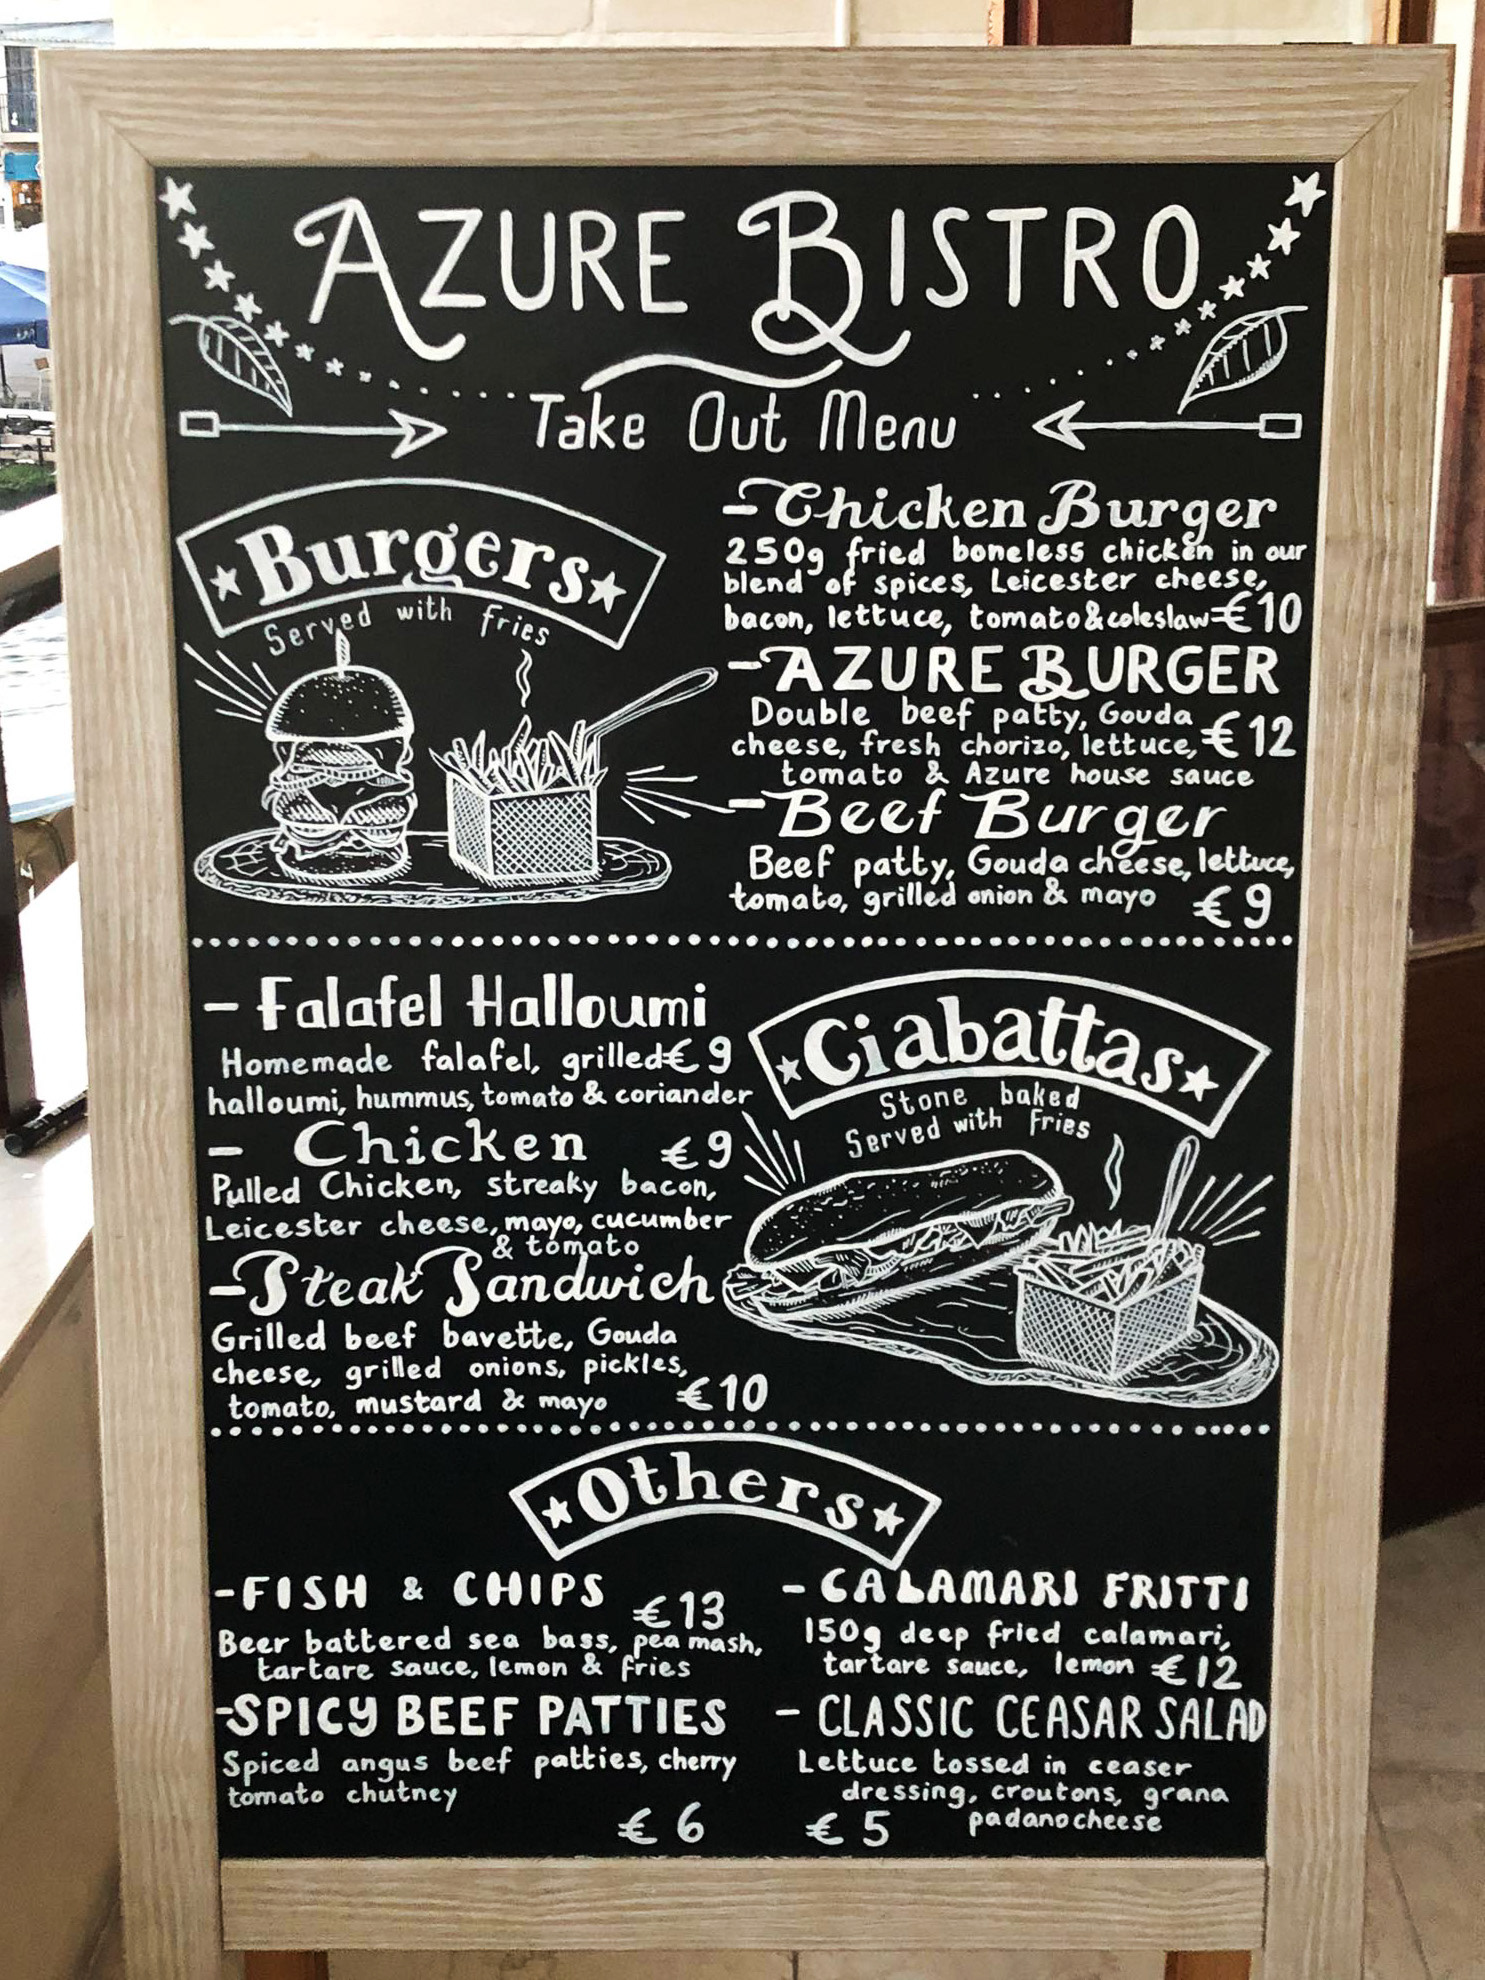 AZURE BISTRO
Take Out Menu
Burgers
Served with fries
- Chicken Burger
250g fried boneless chicken in our
blend of spices, Leicester cheese,
bacon, lettuce, tomato & coleslaw €10
- AZURE BURGER
Double beef patty, Gouda
cheese, fresh chorizo, lettuce, €12
tomato & Azure house sauce
- Beef Burger
Beef patty, Gouda cheese, lettuce,
tomato, grilled onion & mayo €9
- Falafel Halloumi
Homemade falafel, grilled €9
halloumi, hummus, tomato & coriander
- Chicken €9
Pulled Chicken, streaky bacon,
Leicester cheese, mayo, cucumber
& tomato
- Steak Sandwich
Grilled beef bavette, Gouda
cheese, grilled onions, pickles,
tomato, mustard & mayo €10
Ciabattas
Stone baked
Served with Fries
Others
- FISH & CHIPS €13
Beer battered sea bass, pea mash,
tartare sauce, lemon & fries
- SPICY BEEF PATTIES
Spiced angus beef patties, cherry
tomato chutney
€6
- CALAMARI FRITTI
150g deep fried calamari,
tartare sauce, lemon €12
- CLASSIC CEASAR SALAD
Lettuce tossed in ceaser
dressing, croutons, grana
€5 padano cheese